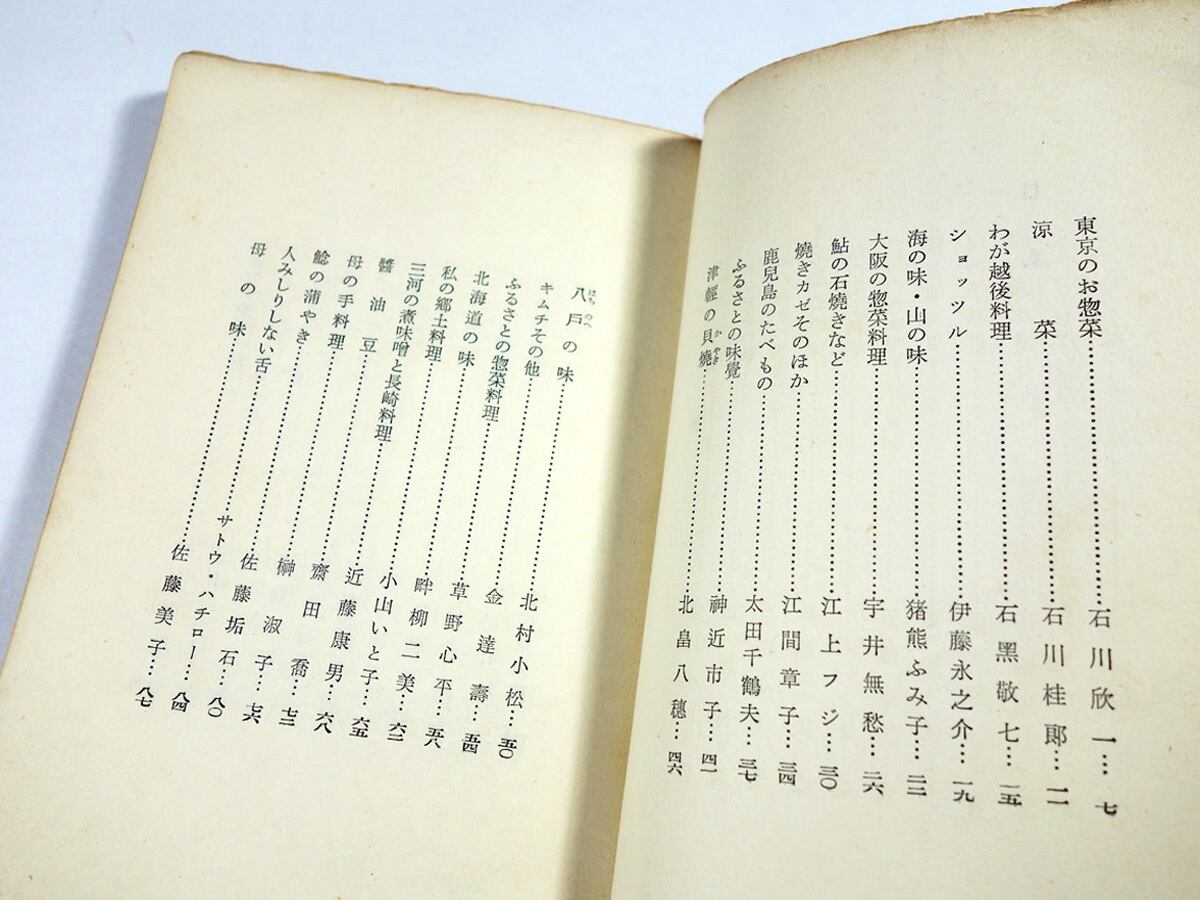 東京のお惣菜……石川欣一…七
涼菜……石川桂郞…一一
わが越後料理……石黑敬七…一五
ショッツル……伊藤永之介…一九
海の味・山の味……猪熊ふみ子…二二
大阪の惣菜料理……宇井無愁…二六
鮎の石燒きなど……江上フジ…三〇
燒きカゼそのほか……江間章子…三四
鹿兒島のたべもの……太田千鶴夫…三七
ふるさとの味覺……神近市子…四一
津輕の貝燒かやき……北畠八穗…四六
八戸はちのへの味……北村小松…五〇
キムチその他……金達壽…五四
ふるさとの惣菜料理……草野心平…五八
北海道の味……畔柳二美…六二
私の郷土料理……小山いと子…六五
三河の煮味噌と長崎料理……近藤康男…六八
醬油豆……齋田喬…七二
母の手料理……榊淑子…七六
鯰の蒲やき……佐藤垢石…八〇
人みしりしない舌……サトウ・ハチロー…八四
母の味……佐藤美子…八七